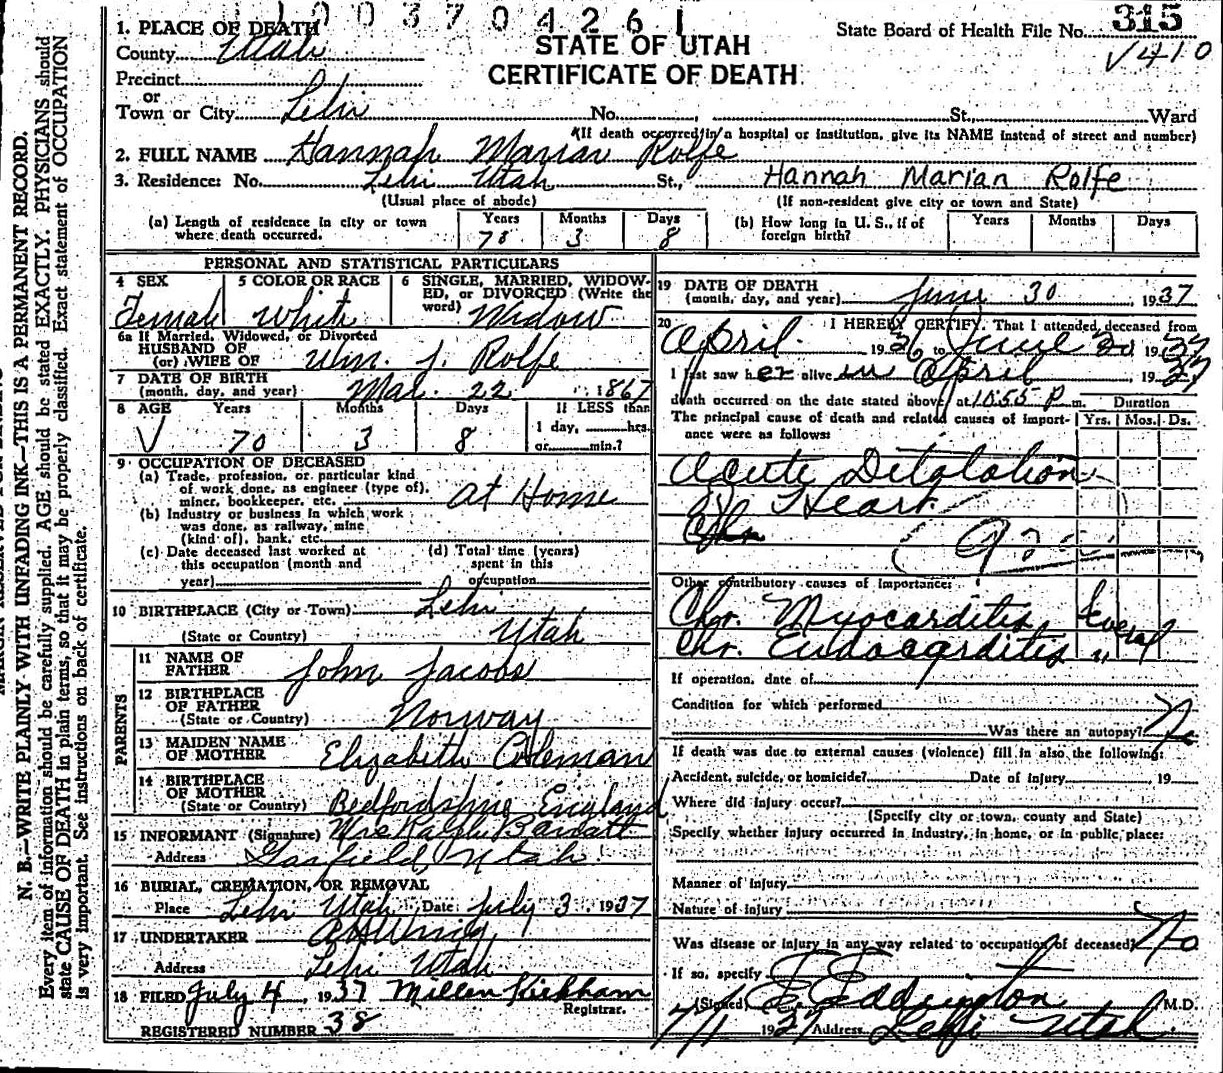 1 0 0 3 7 0 4 2 6 1
State Board of Health File No. 315
√410
STATE OF UTAH
CERTIFICATE OF DEATH
1. PLACE OF DEATH
County Utah
Precinct
or
Town or City Lehi No. , St., Ward
(If death occurred in a hospital or institution, give its NAME instead of street and number)
2. FULL NAME Hannah Marian Rolfe
3. Residence: No. Lehi Utah St., Hannah Marian Rolfe
(Usual place of abode) (If non-resident give city or town and State)
(a) Length of residence in city or town where death occurred. Years 70 Months 3 Days 8
(b) How long in U. S., if of foreign birth? Years Months Days
PERSONAL AND STATISTICAL PARTICULARS
4 SEX Female
5 COLOR OR RACE white
6 SINGLE, MARRIED, WIDOWED, or DIVORCED (Write the word) Widow
6a If Married, Widowed, or Divorced
HUSBAND OF
(or) WIFE OF Wm. J. Rolfe
7 DATE OF BIRTH
(month, day, and year) Mar. 22 1867
8 AGE Years 70 Months 3 Days 8
If LESS than
1 day, hrs.
or min.?
9 OCCUPATION OF DECEASED
(a) Trade, profession, or particular kind
of work done, as engineer (type of),
miner, bookkeeper, etc. at Home
(b) Industry or business in which work
was done, as railway, mine
(kind of), bank, etc.
(c) Date deceased last worked at
this occupation (month and
year)
(d) Total time (years)
spent in this
occupation
10 BIRTHPLACE (City or Town) Lehi
(State or Country) Utah
PARENTS
11 NAME OF
FATHER John Jacobs
12 BIRTHPLACE
OF FATHER
(State or Country) Norway
13 MAIDEN NAME
OF MOTHER Elizabeth Coleman
14 BIRTHPLACE
OF MOTHER
(State or Country) Bedfordshire England
15 INFORMANT (Signature) Mrs Ralph Barratt
Address Garfield, Utah
16 BURIAL, CREMATION, OR REMOVAL
Place Lehi Utah Date July 3 1937
17 UNDERTAKER
Address Lehi Utah
18 FILED July 4, 1937 Millen Kirkham
Registrar.
REGISTERED NUMBER 38
19 DATE OF DEATH
(month, day, and year) June 30, 1937
20 I HEREBY CERTIFY, That I attended deceased from
April 1936 to June 30 1937
I last saw her alive in April, 1937
death occurred on the date stated above, at 10:55 P m. Duration
The principal cause of death and related causes of importance were as follows: Yrs. Mos. Ds.
Acute Ditalation
of Heart
Other contributory causes of importance:
Chr. Myocarditis Several
Chr. Endocarditis "
If operation, date of
Condition for which performed
Was there an autopsy? No
If death was due to external causes (violence) fill in also the following:
Accident, suicide, or homicide? Date of injury 19
Where did injury occur?
(Specify city or town, county and State)
Specify whether injury occurred in industry, in home, or in public place:
Manner of injury
Nature of injury
Was disease or injury in any way related to occupation of deceased? No
If so, specify
(Signed) E. Eddington M.D.
7/1 1937 Address Lehi Utah
N. B.—WRITE PLAINLY WITH UNFADING INK—THIS IS A PERMANENT RECORD.
Every item of information should be carefully supplied. AGE should be stated EXACTLY. PHYSICIANS should
state CAUSE OF DEATH in plain terms, so that it may be properly classified. Exact statement of OCCUPATION
is very important. See instructions on back of certificate.